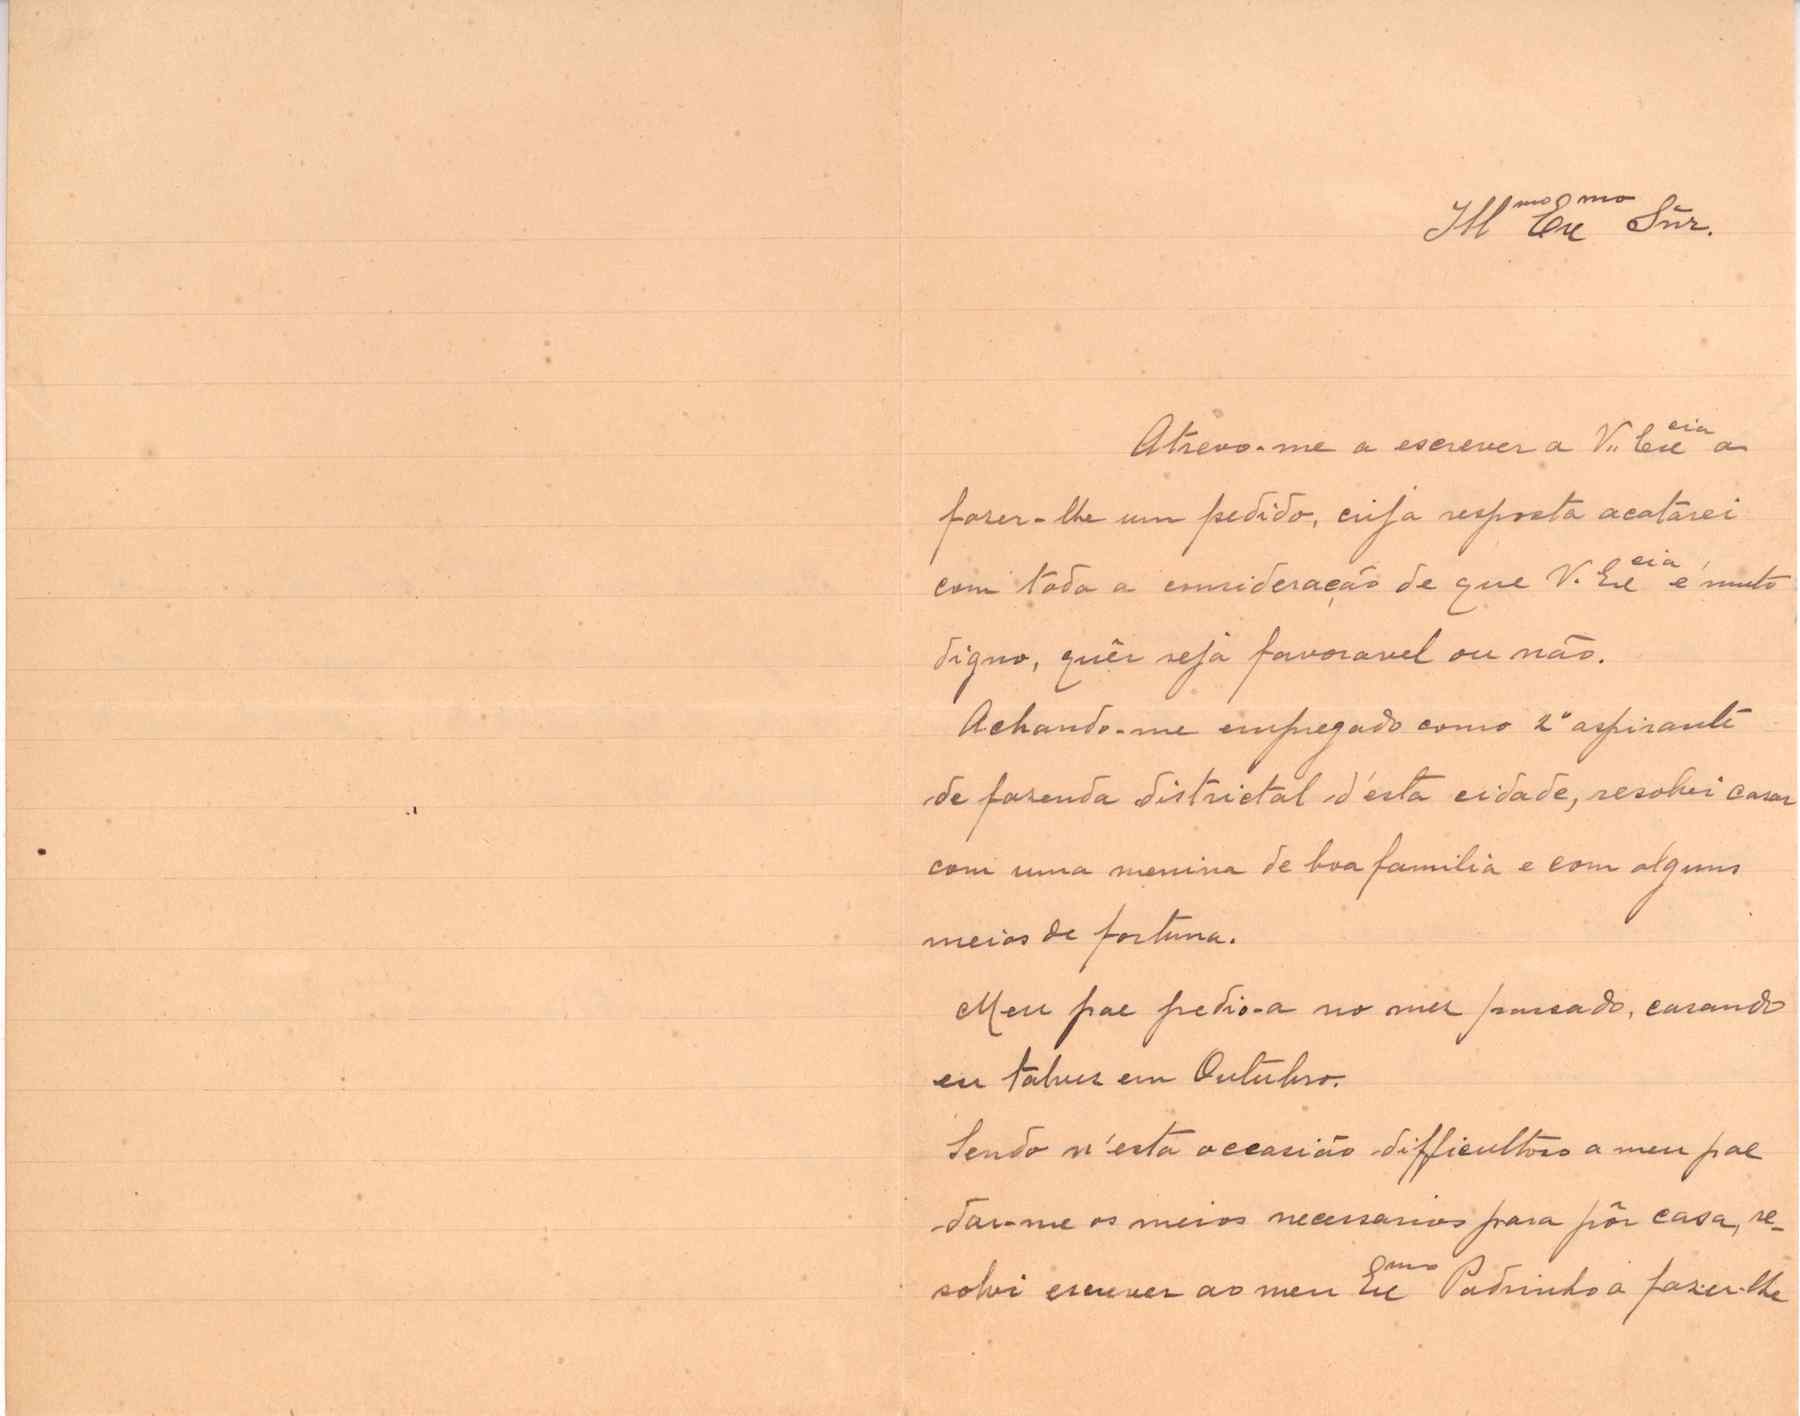 Ill.mo Ex.mo Snr.
Atrevo-me a escrever a V.. Excia a
fazer-lhe um pedido, cuja resposta acatarei
com toda a consideração de que V. Excia é muito
digno, quêr seja favoravel ou não.
Achando-me empregado como 2º aspirante
de fazenda districtal d'ésta cidade, resolvi casar
com uma menina de boa familia e com alguns
meios de fortuna.
Meu pae pedio-a no mez passado, casando
eu talvez em Outubro.
Sendo n'esta occasião difficultoso a meu pae
dar-me os meios necessarios para pôr casa, re-
solvi escrever ao meu Exmo Padrinho a fazer-lhe